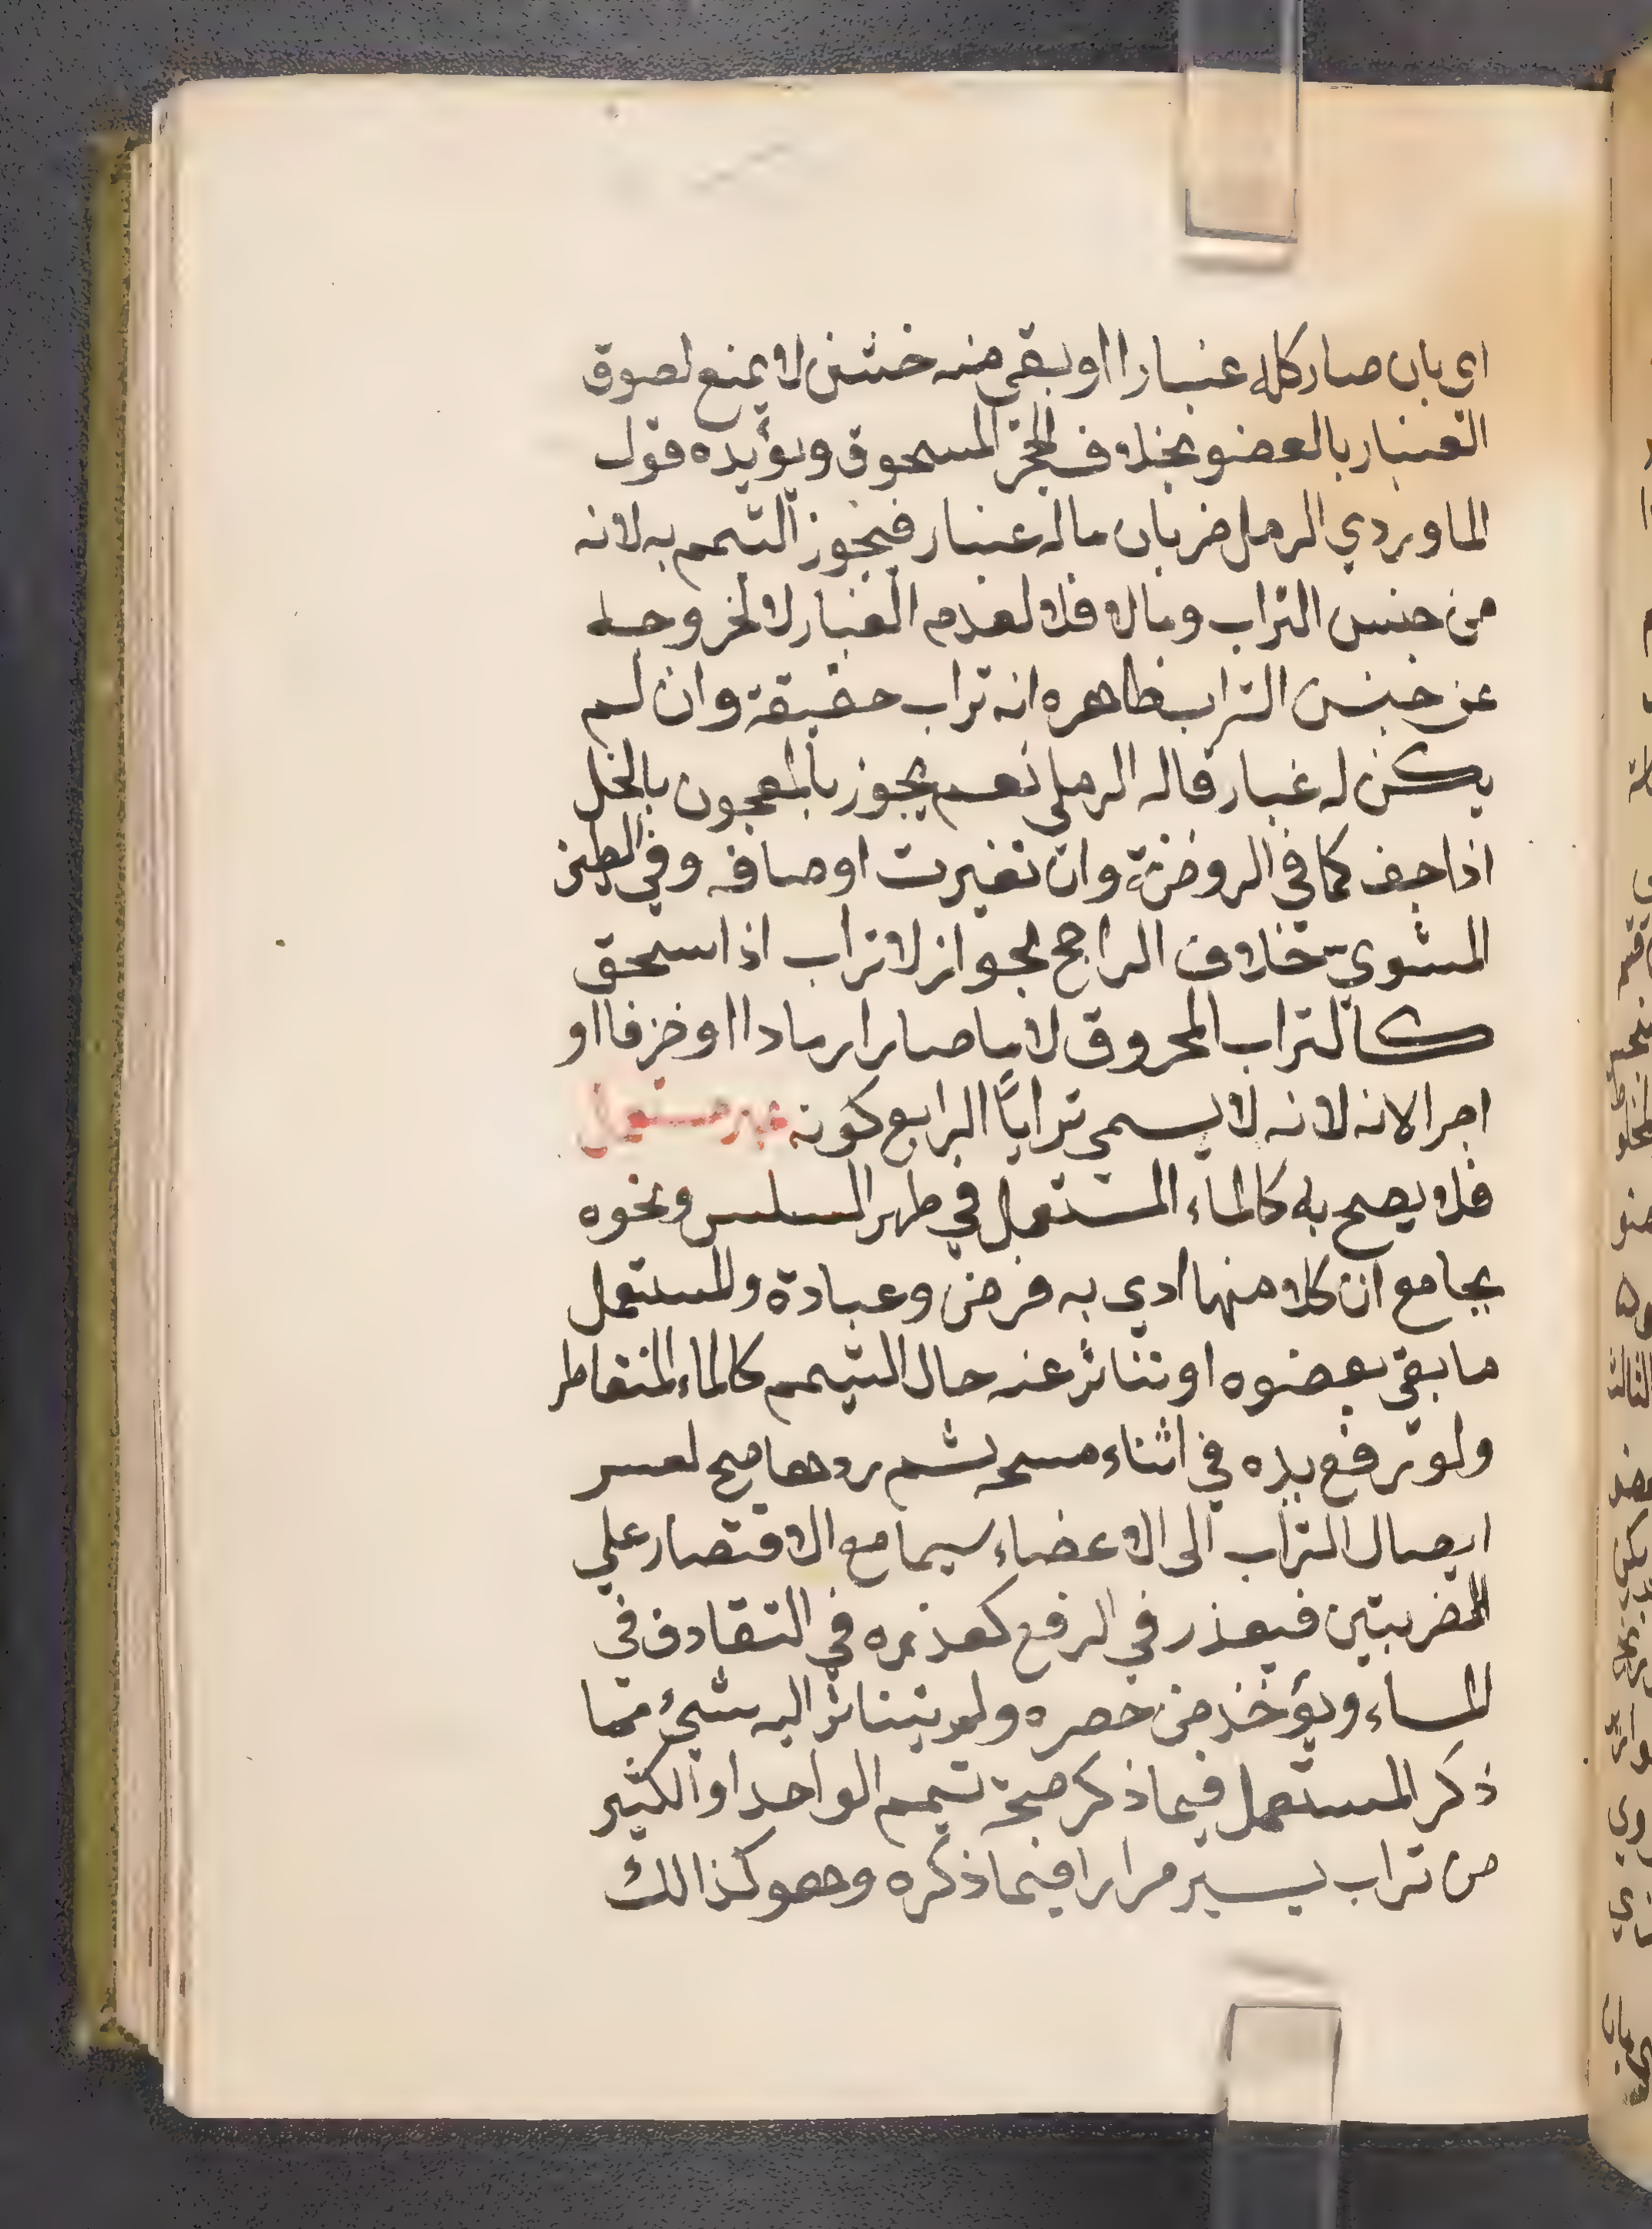 اي بان صار كله غبارا او بقي منه خشن لا يمنع لصوق
الغبار بالعضو بخلاف الحجر المسحوق ويؤيده قول
الماوردي الرمل ضربان ماله غبار فيجوز التيمم به لانه
من جنس التراب ومالا فلا لعدم الغبار لا لخروجه
عن جنس التراب فظاهره انه تراب حقيقة وان لم
يكن له غبار قاله الرملي نعم يجوز بالمعجون بالخل
اذا جف كما في الروضة وان تغيرت اوصافه وفي الطين
المشوي خلاف الراجح لجواز لا تراب اذا سحق
كالتراب المحروق لا ما صار ارمادا اوخزفا او
اجرا لانه لانه لا يسمى ترابًا الرابع كونه غير مستعمل
فلا يصح به كالماء المستعمل في طهر السلس ونحوه
بجامع ان كلا منهما ادي به فرض وعبادة والمستعمل
ما بقي بعضوه او تناثر عنه حال التيمم كالماء المتقاطر
ولو رفع يده في اثناء مسحه ثم ردها صح لعسر
ايصال التراب الى الاعضاء سيما مع الاقتصار علي
الضربتين فيعذر في الرفع كعذره في التقاذف في
الماء ويؤخذ من حصره ولو يتناثر اليه شيئ مما
ذكر المستعمل فيما ذكر صحة تيمم الواحد او الكثير
من تراب يسير مرارا فيما ذكره وهو كذالك